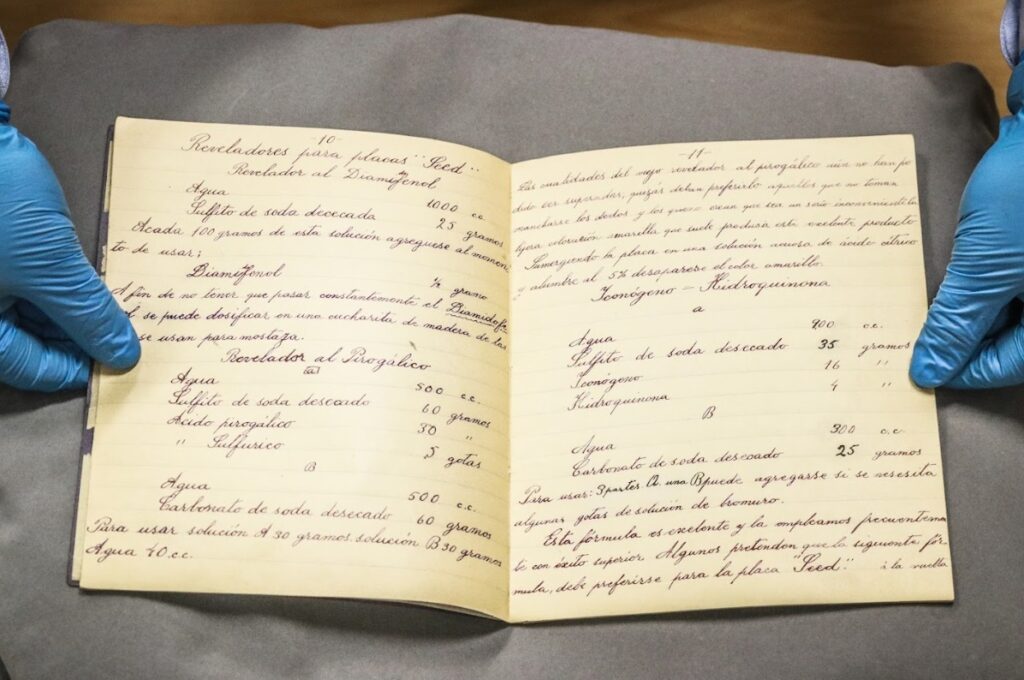 -10-
Reveladores para placas "Seed"
Revelador al Diamifenol
Agua 1000 c.c.
Sulfito de soda dececada 25 gramos
Acada 100 gramos de esta solución agreguese al momen
to de usar;
Diamifenol ½ gramo
A fin de no tener que pasar constantemente el Diamidofe
se puede dosificar en una cucharita de madera de las
se usan para mostaza.
Revelador al Pirogálico
(a)
Agua 500 c.c.
Sulfito de soda desecado 60 gramos
Ácido pirogálico 30 "
" Sulfurico 5 gotas
B
Agua 500 c.c.
Carbonato de soda desecado 60 gramos
Para usar solución A 30 gramos solución B 30 gramos
Agua 40 c.c.
-11-
Las cualidades del viejo revelador al pirogálico aún no han po
dido ser superadas, quizás deban preferirlo aquellos que no toman
mancharse los dedos y los que no crean que sea un serio inconveniente la
ligera coloración amarilla que suele producir este exelente producto
Sumergiendo la placa en una solución acuosa de ácido cítrico
y alumbre al 5% desaparese el color amarillo.
Iconógeno - Hidroquinona
a
Agua 900 c.c.
Sulfito de soda desecado 35 gramos
Iconógeno 16 "
Hidroquinona 4 "
B
Agua 300 c.c.
Carbonato de soda desecado 25 gramos
Para usar: 3 partes A una B puede agregarse si se nesesita
algunas gotas de solución de bromuro.
Esta fórmula es exelente y la empleamos frecuentemen
te con éxito superior. Algunos pretenden que la siguiente fór
mula, debe preferirse para la placa "Seed". á la vuelta